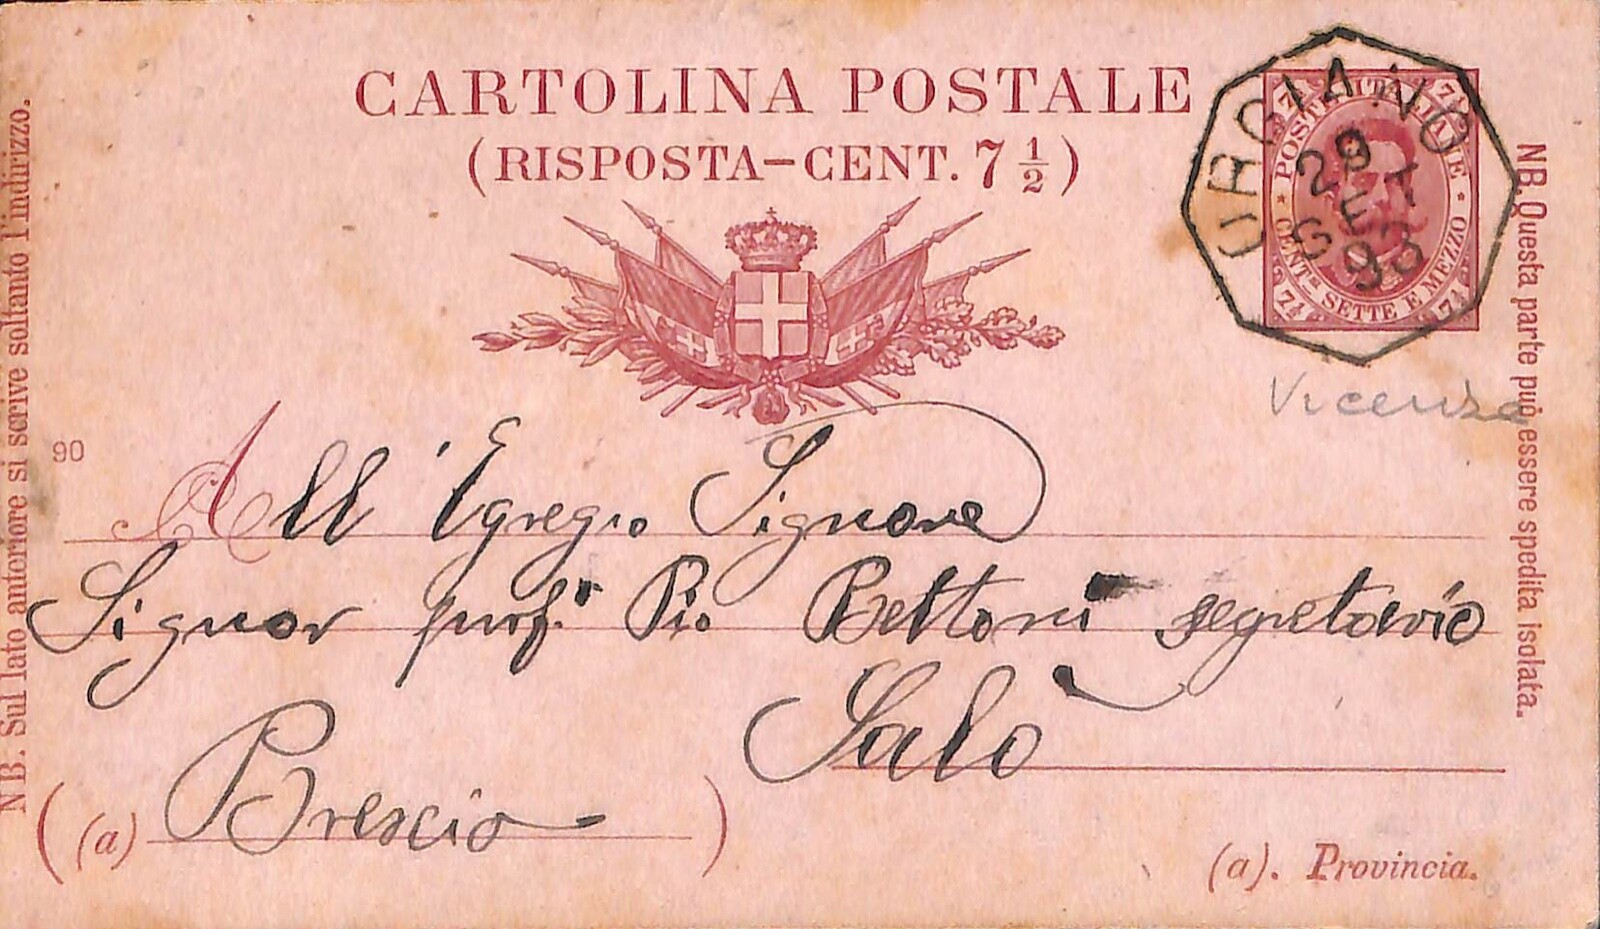 CARTOLINA POSTALE
(RISPOSTA-CENT. 7 ½)
ORGIANO
29
SET
93
POSTE ITALIANE
CENT.mi SETTE E MEZZO
7½ 7½
7½ 7½
Vicenza
90
All' Egregio Signore
Signor prof.r Pio Bettoni segretario
Salò
(
(a) Brescia
)
(a). Provincia.
NB. Sul lato anteriore si scrive soltanto l'indirizzo.
NB. Questa parte può essere spedita isolata.